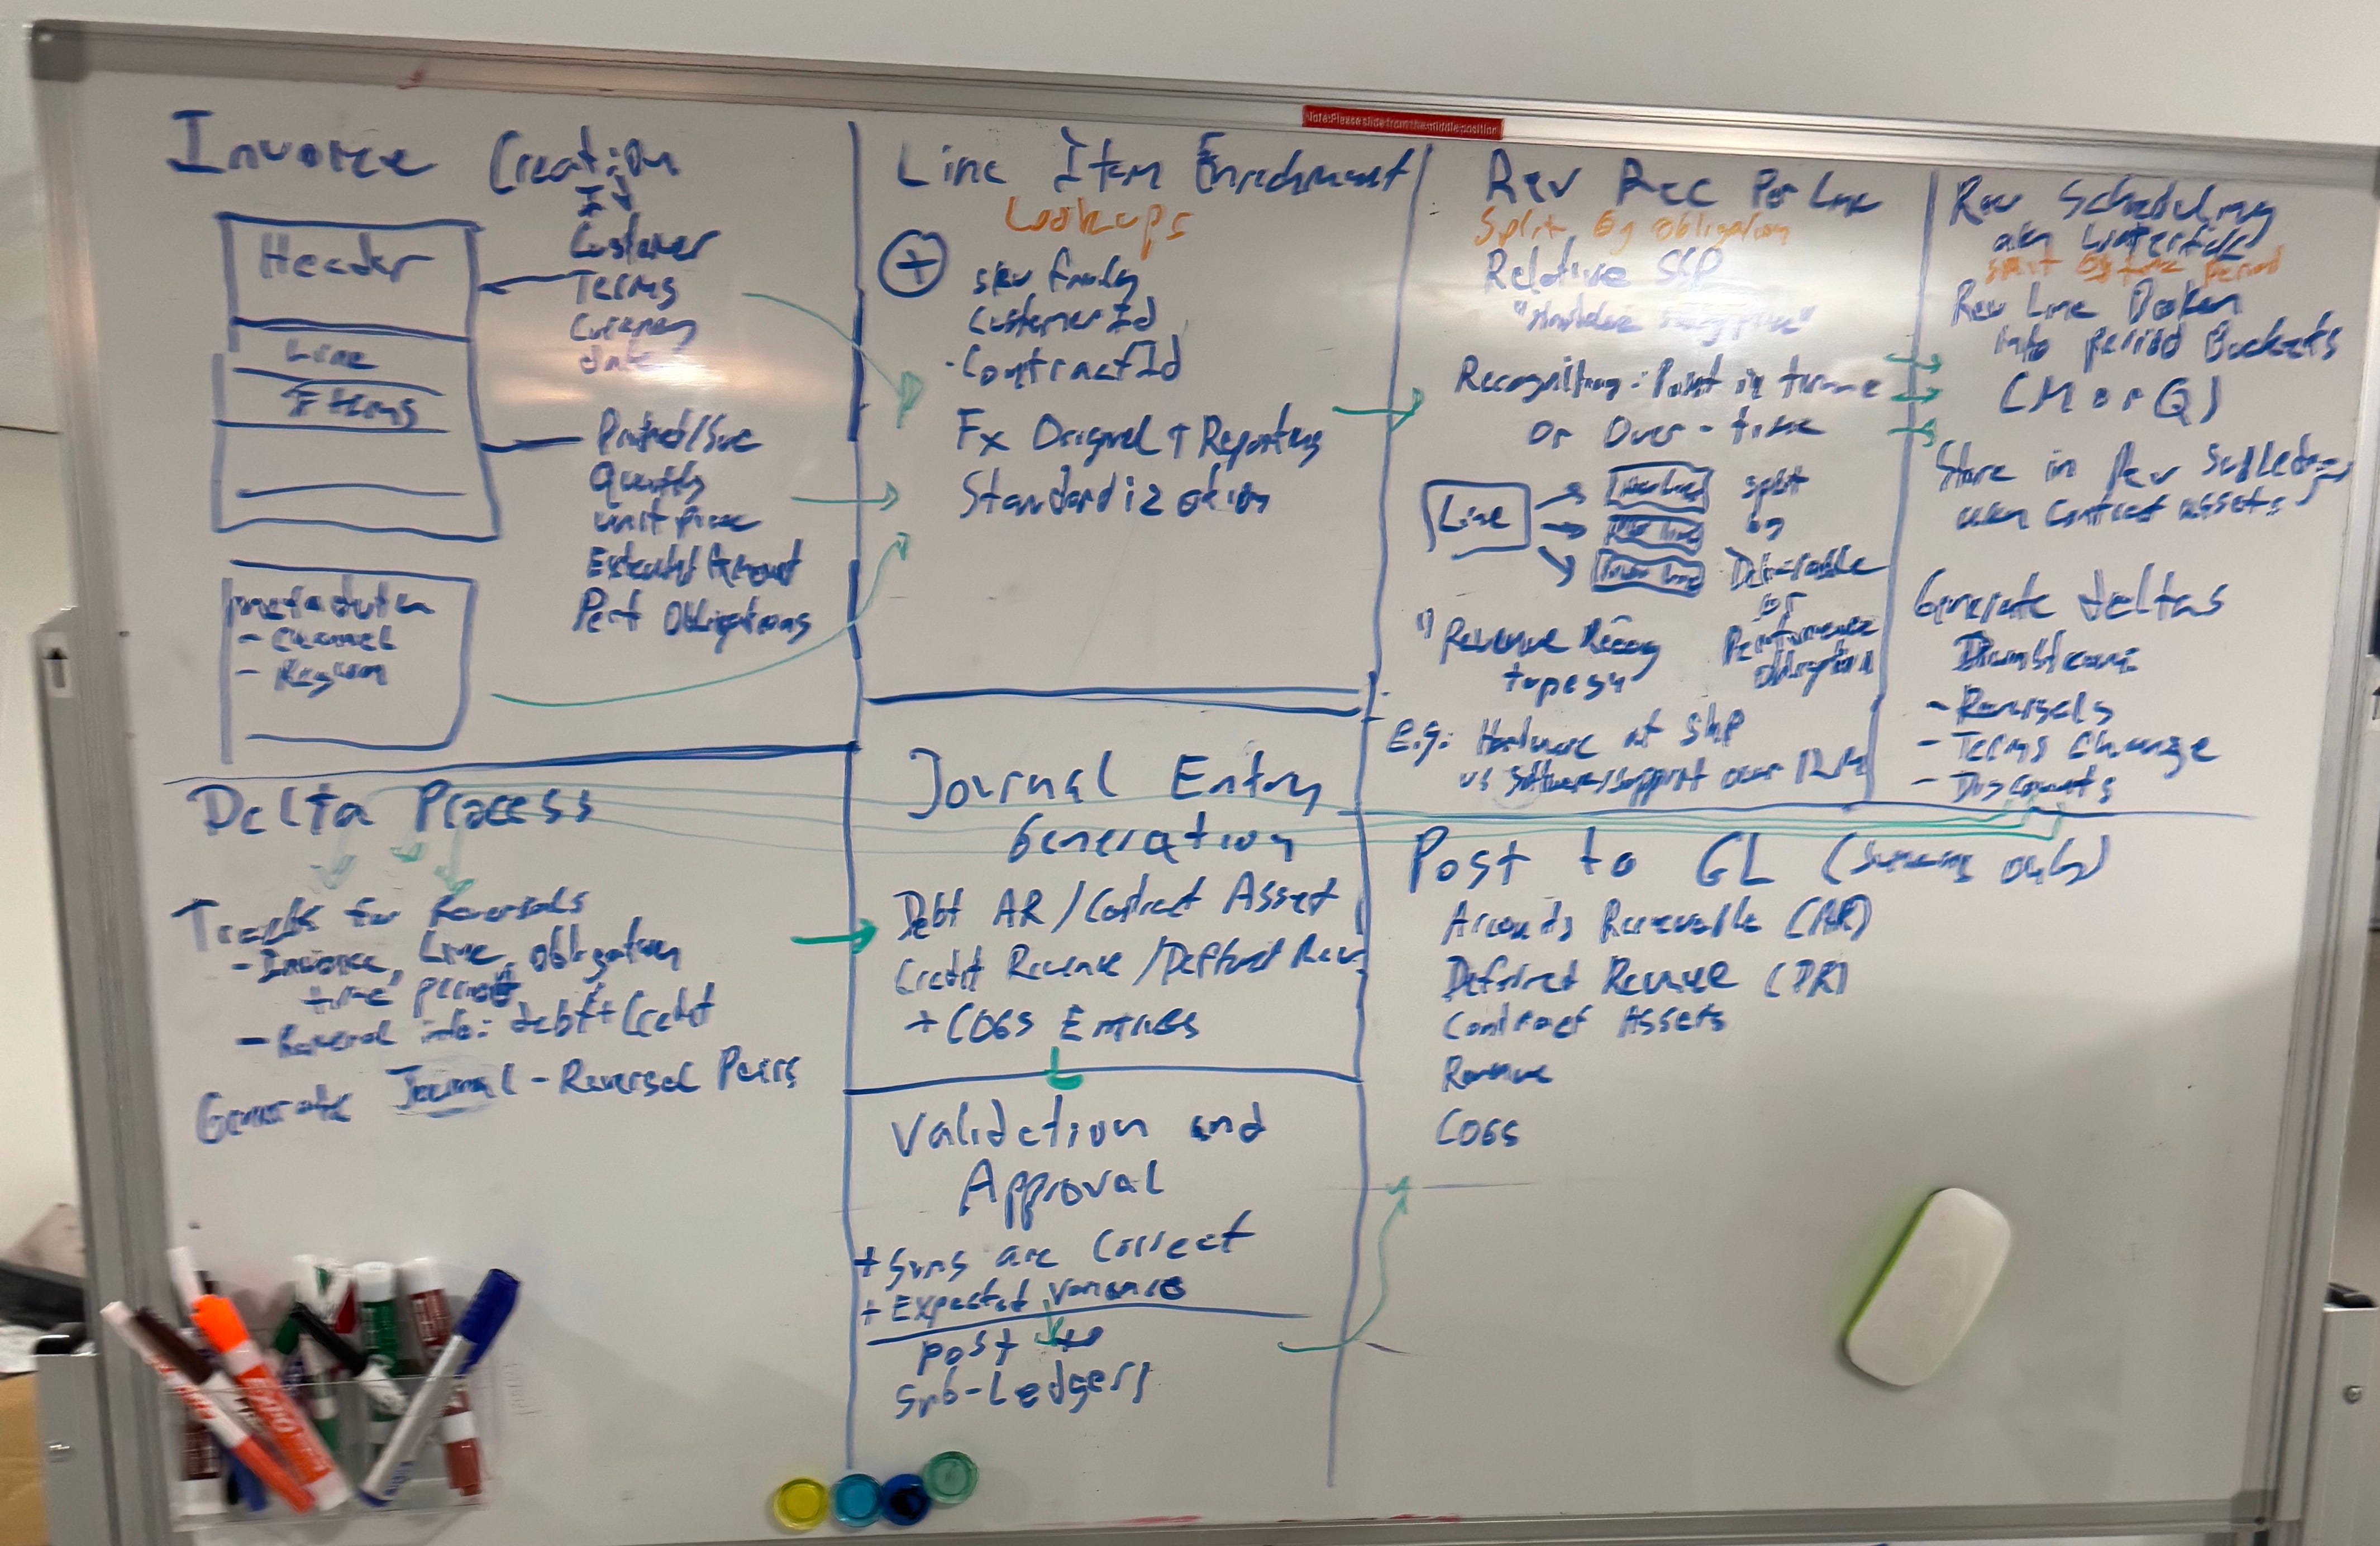 Note: Please slide from the middle position
Invoice Creation
Header
Line
Items
Id
Customer
Terms
Currency
date
Product/Svc
Quantity
unit price
Extended Amount
Perf Obligations
metadata
- Channel
- Region
Line Item Enrichment
Lookups
+
sku family
CustomerId
- ContractId
Fx Original Reporting
Standardization
Rev Rec Per Line
Split By Obligation
Relative SSP
Recognition: Point in time
or Over-time
Line
split
by
Deliverable
or
Performance
obligation
"Revenue Recog
types"
E.g: Hardware at ship
vs Software/support over 12M
Rev Scheduling
aka Waterfall
split by time period
Rev Line Broken
into period Buckets
(M or Q)
Store in Rev Subledger
aka contract assets
Generate deltas
Downstream:
- Reversals
- Terms Change
- Discounts
Delta Process
Tracks for Reversals
- Invoice, Line, Obligation
time period
- Reversal info: debt + Credit
Generate Journal-Reversal Pairs
Journal Entry
Generation
Debt AR/Contract Asset
Credit Revenue/Deferred Rev
+ COGS Entries
Validation and
Approval
+ Sums are Correct
+ Expected variances
post to
Sub-Ledgers
Post to GL (summary only)
Accounts Receivable (AR)
Deferred Revenue (DR)
Contract Assets
Revenue
COGS